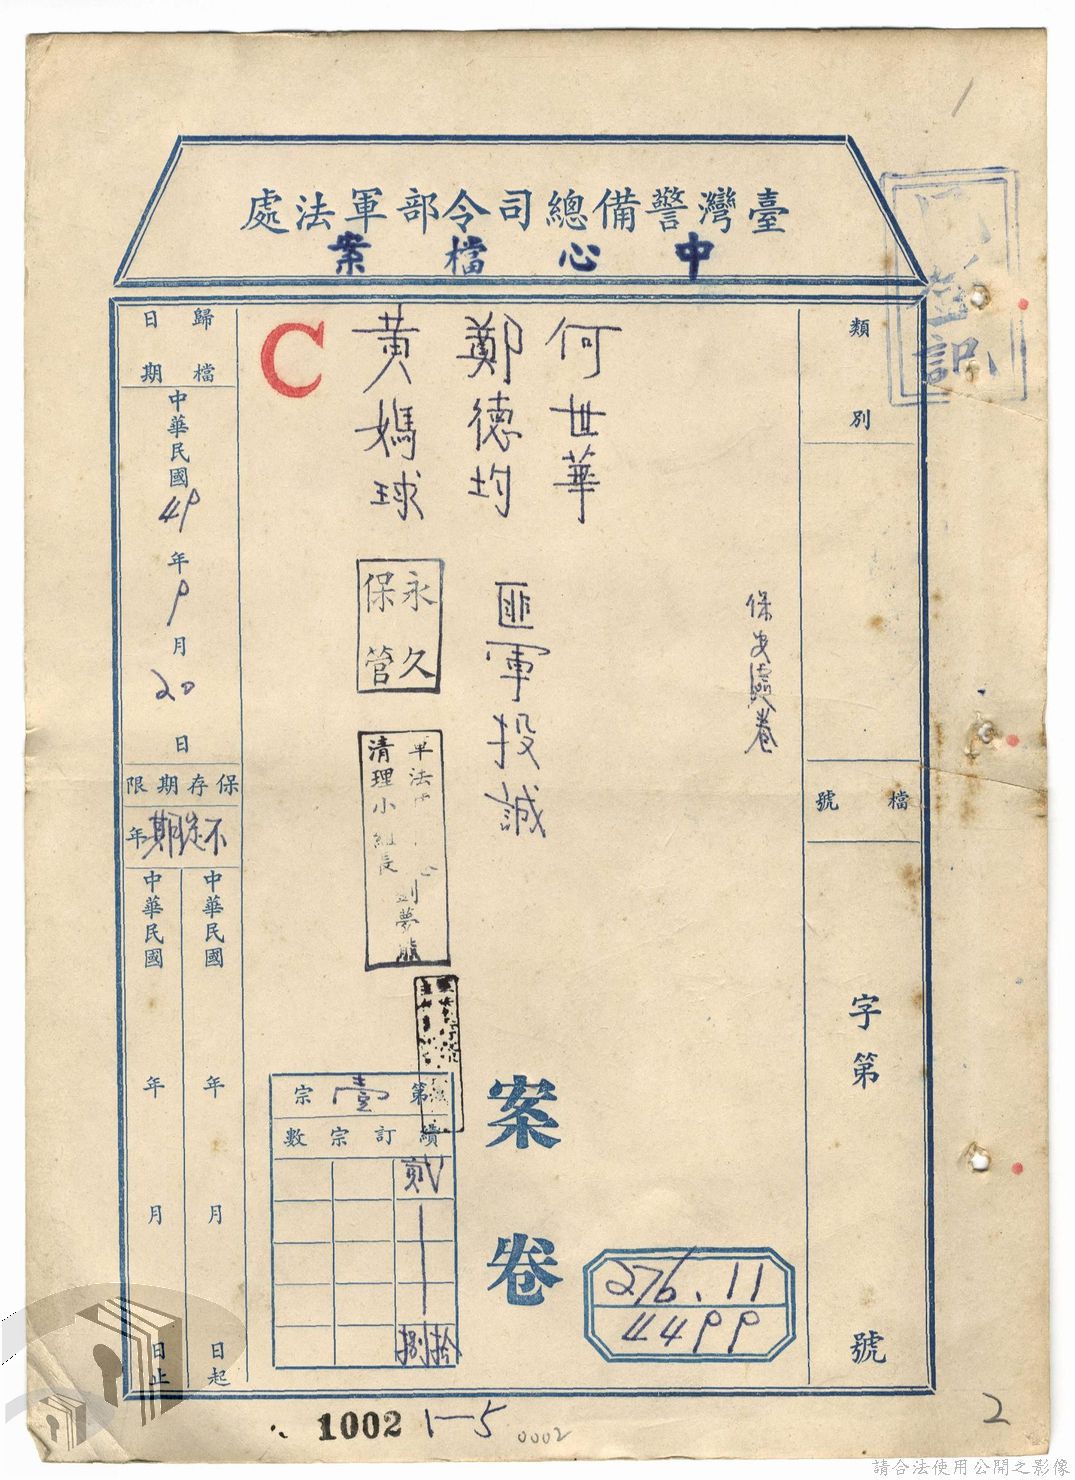 臺灣警備總司令部軍法處
中心檔案
類別
檔號
字第
號
登記
保安處卷
何世華
鄭德均
黃媽球
匪軍投誠
C
永久
保管
軍法
清理小組長
劉夢熊
案卷
第壹宗
續訂宗數
貳
捌
拾
276.11
4499
歸檔日期
中華民國49年9月20日
保存期限
不定期年
中華民國 年 月 日起
中華民國 年 月 日止
1002
1-5
0002
1
2
請合法使用公開之影像